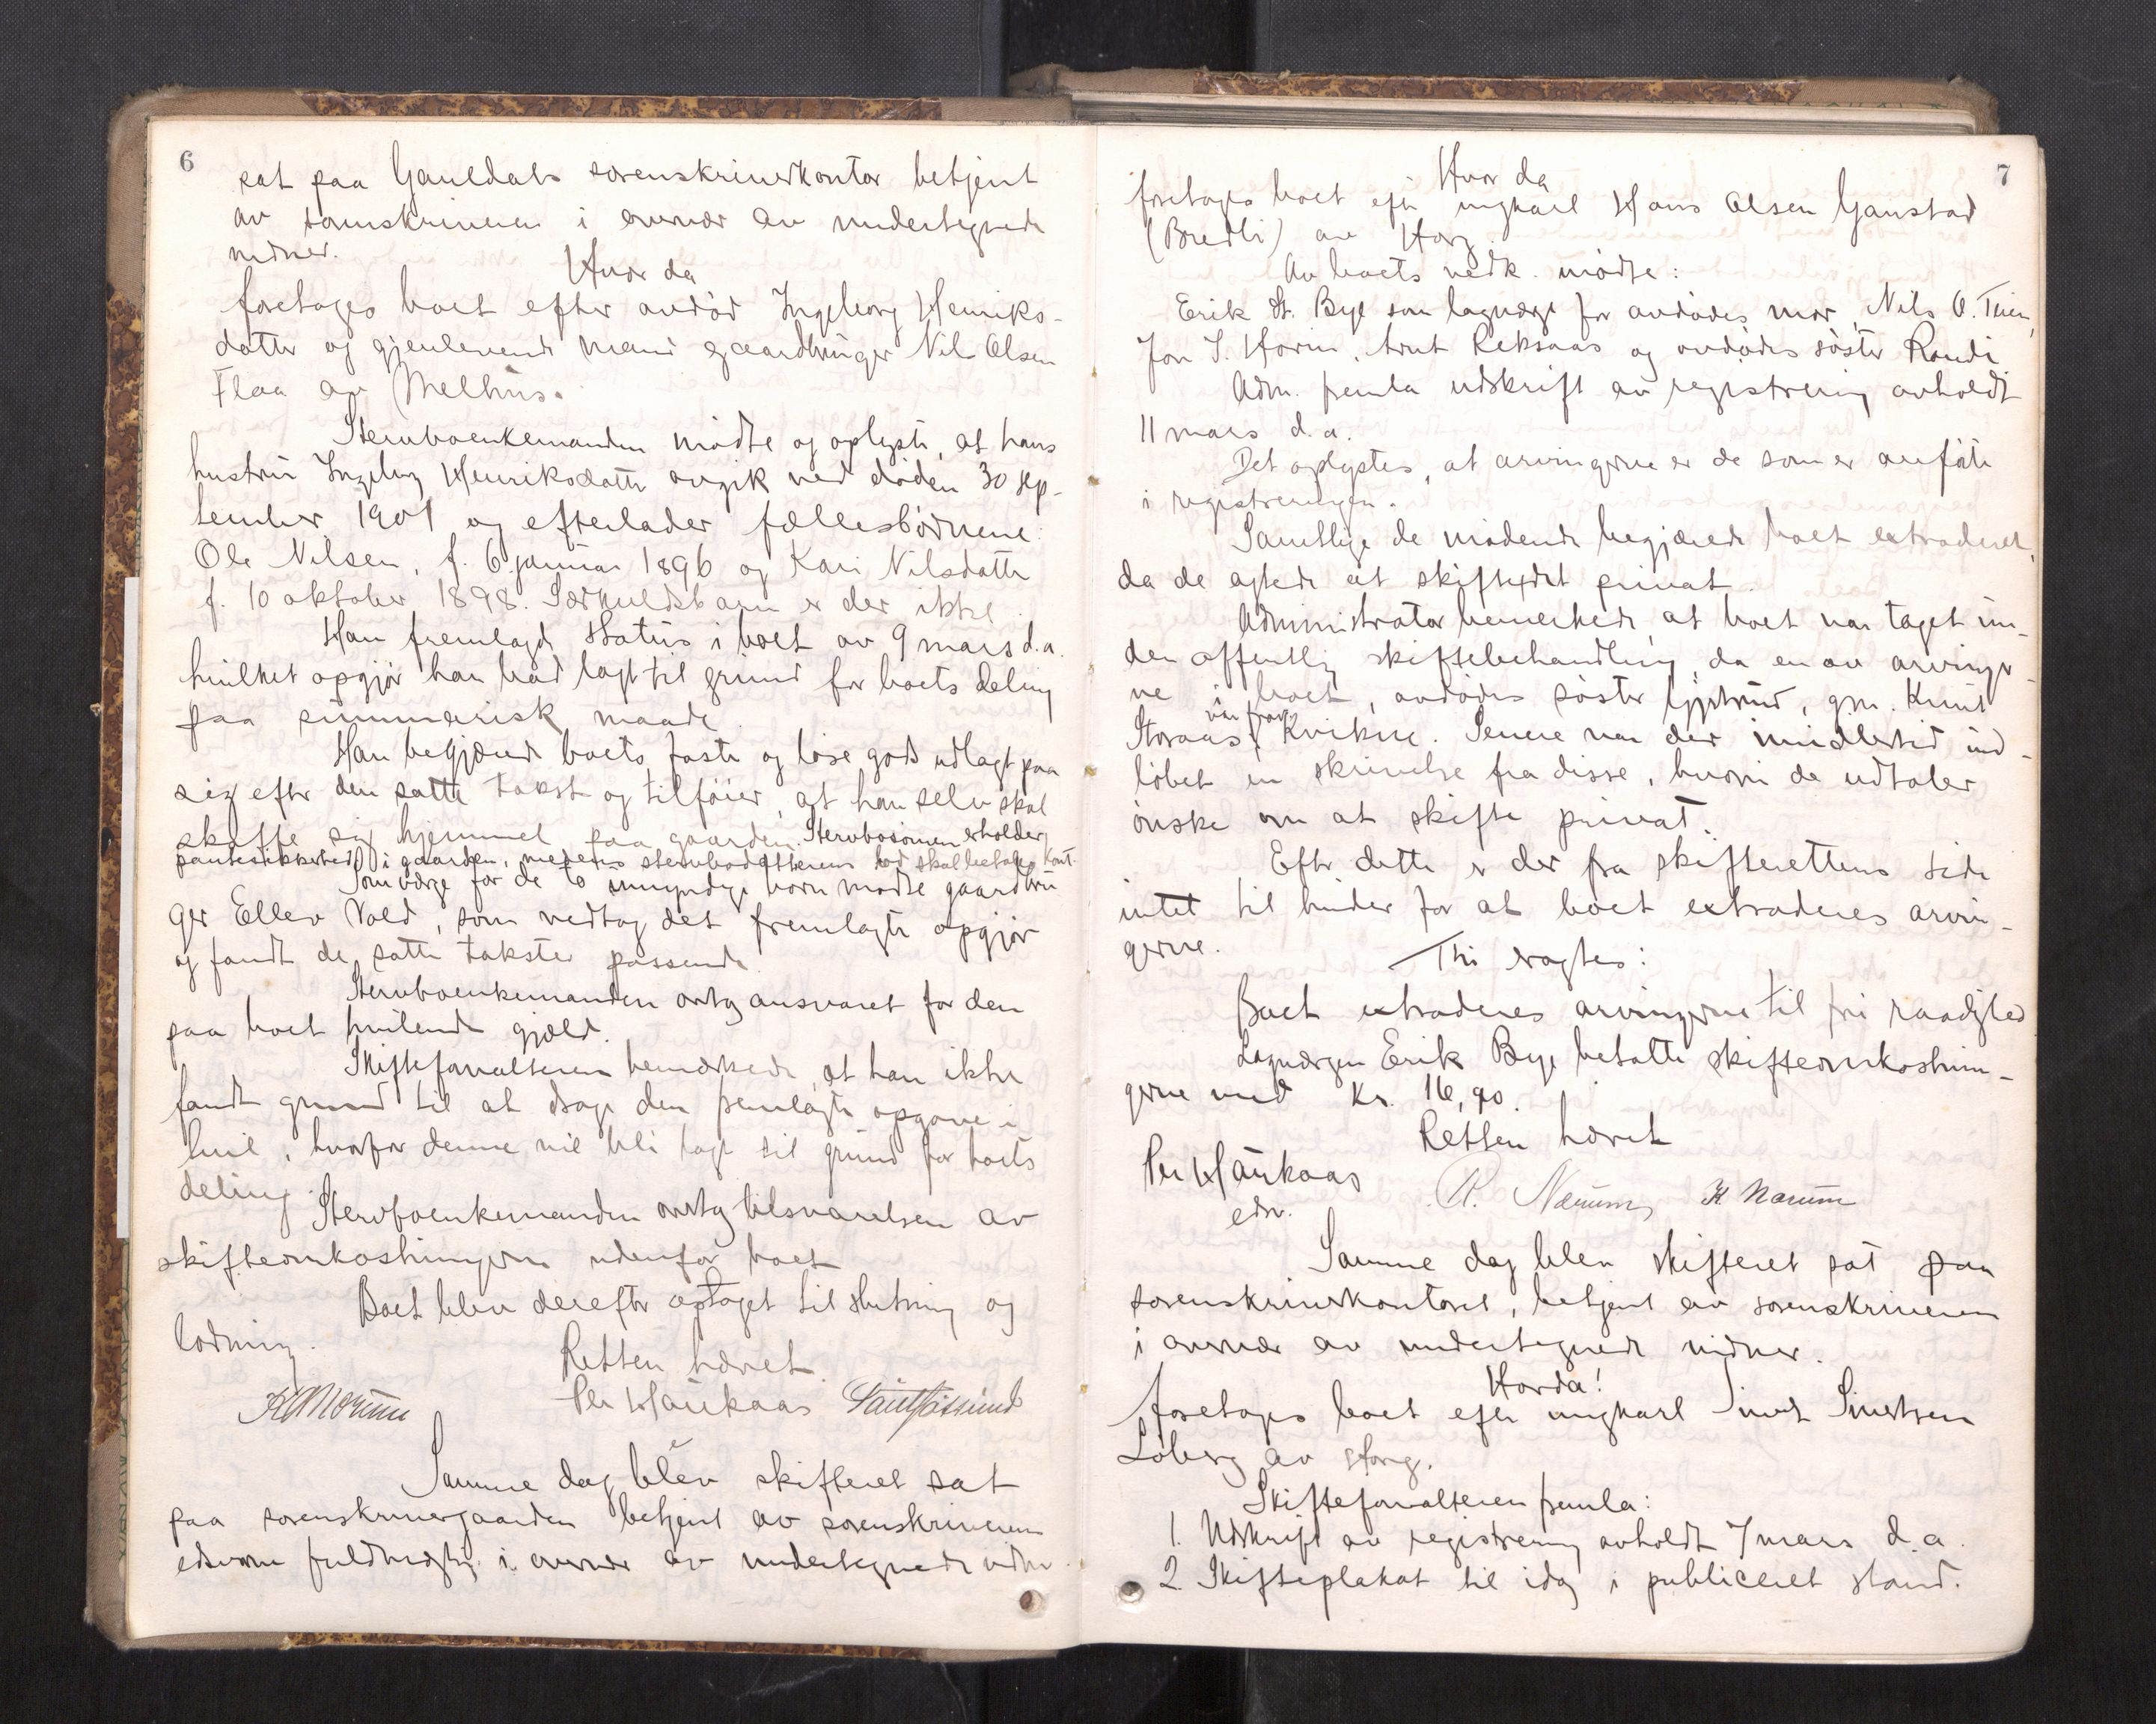 6
sat paa Gauldals sorenskriverkontor betjent
av sorenskriveren i overvær av undertegnede
vidner.
Hvor da
foretages boet efter avdød Ingeborg Henriks-
datter og gjenlevende mand gaardbruger Nils Olsen
Flaa av Melhus.
Stervboenkemanden mødte og oplyste, at hans
hustru Ingeborg Henriksdatter avgik ved døden 30 sep-
tember 1901 og efterlader fællesbørnene:
Ole Nilsen, f. 6 januar 1896 og Kari Nilsdatter
f. 10 oktober 1898. Særkuldsbarn er der ikke.
Han fremlagde status i boet av 9 mars d.a.
hvilket opgjør han bad lagt til grund for boets deling
paa summarisk maade.
Han begjærede boets faste og løse gods udlagt paa
sig efter den satte takst og tilføier, at han selv skal
skaffe sig hjemmel paa gaarden. Stervbosønnen erholder
pantesikkerhed i gaarden, medens stervbodatterens lod skal betales kont.
Som værge for de to umyndige børn mødte gaardbru
ger Ellev Vold, som vedtog det fremlagte opgjør
og fandt de satte takster passende.
Stervboenkemanden overtog ansvaret for den
paa boet hvilende gjæld.
Skifteforvalteren bemærkede, at han ikke
fandt grund til at drage den fremlagte opgave i
tvil, hvorfor denne vil bli lagt til grund for boets
deling.
Stervboenkemanden overtog tilsvarelsen av
skifteomkostningerne udenfor boet
Boet blev derefter optaget til slutning og
lodning.
Retten hævet.
K Nærum Per Haukaas
Samme dag blev skifteret sat
paa sorenskrivergaarden betjent av sorenskriverens
edsvorne fuldmægtig i overvær av undertegnede vidner.
7
Hvor da
foretages boet efter ungkarl Hans Olsen Gaustad
(Bredli) av Horg.
Av boets vedk. mødte:
Erik St. Bye som lagværge for avdødes mor, Nils O. Teien,
Jon J. Hovin, Arnt Reksaas og avdødes søster Randi.
Adm. fremla udskrift av registrering avholdt
11 mars d.a.
Det oplystes, at arvingerne er de som er anførte
i registreringen.
Samtlige de mødende begjærede boet extraderet,
da de agtede at skifte det privat.
Administrator bemerkede, at boet var taget un-
der offentlig skiftebehandling, da en av arvinger-
ne i boet, avdødes søster Gjertrud, gm. Knut
Storaas, var fra Kvikne. Senere var der imidlertid ind-
løbet en skrivelse fra disse, hvori de udtaler
ønske om at skifte privat.
Efter dette er der fra skifterettens side
intet til hinder for at boet extraderes arvin-
gerne.
Thi eragtes:
Boet extraderes arvingerne til fri raadighed
Lagværgen Erik Bye betalte skifteomkostnin-
gerne med Kr. 16,90.
Retten hævet
Per Haukaas R. Nærum K Nærum
edsv.
Samme dag blev skifteret sat paa
sorenskriverkontoret, betjent av sorenskriveren
i overvær av undertegnede vidner.
Hvorda!
foretages boet efter ungkarl Sivert Sivertsen
Løberg av Horg.
Skifteforvalteren fremla:
1. Udskrift av registrering avholdt 7 mars d.a.
2. Skifteplakat til idag i publiceret stand.